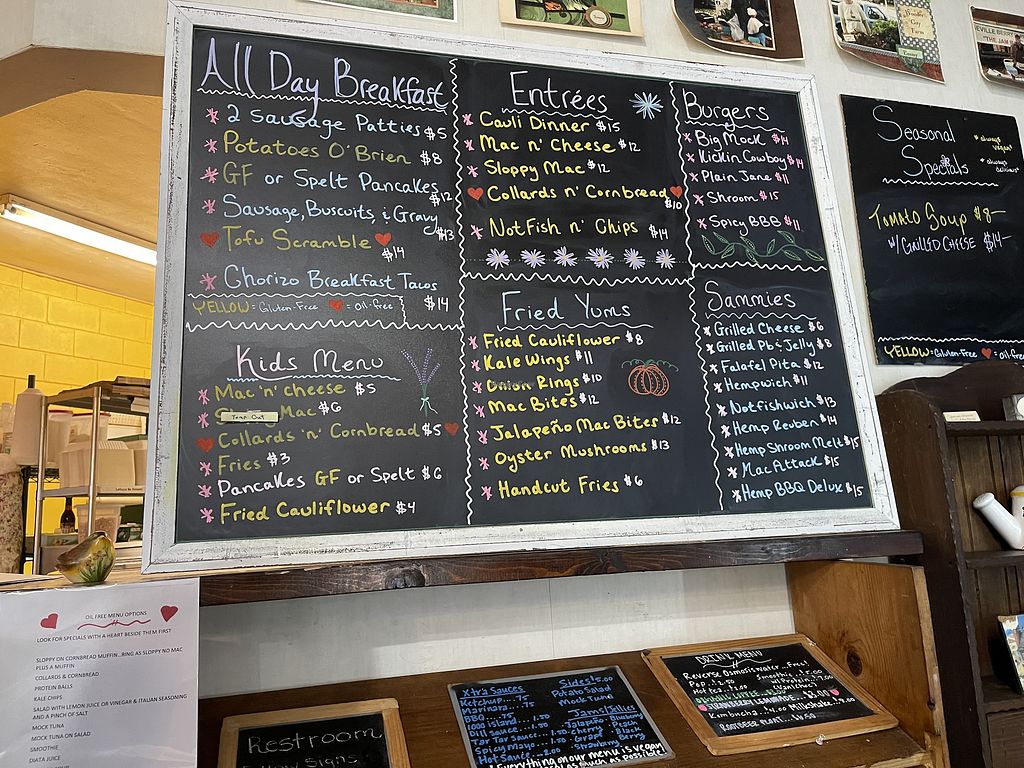 All Day Breakfast
2 Sausage Patties $5
Potatoes O'Brien $8
GF or Spelt Pancakes $12
Sausage, Buscuits, & Gravy $13
Tofu Scramble $14
Chorizo Breakfast Tacos $14
YELLOW = Gluten-Free = oil-free
Kids Menu
Mac 'n' cheese $5
Temp Out Mac $6
Collards 'n' Cornbread $5
Fries $3
Pancakes GF or Spelt $6
Fried Cauliflower $4
Entrées
Cauli Dinner $15
Mac n' Cheese $12
Sloppy Mac $12
Collards n' Cornbread $10
NotFish n' Chips $14
Fried Yums
Fried Cauliflower $8
Kale Wings $11
Onion Rings $10
Mac Bites $12
Jalapeño Mac Bites $12
Oyster Mushrooms $13
Handcut Fries $6
Burgers
Big Mock $14
Kickin Cowboy $14
Plain Jane $11
Shroom $15
Spicy BBB $11
Sammies
Grilled Cheese $6
Grilled Pb & Jelly $8
Falafel Pita $12
Hempwich $11
Notfishwich $13
Hemp Reuben $14
Hemp Shroom Melt $15
Mac Attack $15
Hemp BBQ Deluxe $15
Seasonal Specials
* always vegan*
* always delicious*
Tomato Soup $8—
w/ Grilled Cheese $14—
YELLOW = Gluten-Free = oil-free
OIL FREE MENU OPTIONS
LOOK FOR SPECIALS WITH A HEART BESIDE THEM FIRST
SLOPPY ON CORNBREAD MUFFIN...RING AS SLOPPY NO MAC
PLUS A MUFFIN
COLLARDS & CORNBREAD
PROTEIN BALLS
KALE CHIPS
SALAD WITH LEMON JUICE OR VINEGAR & ITALIAN SEASONING
AND A PINCH OF SALT
MOCK TUNA
MOCK TUNA ON SALAD
SMOOTHIE
DIATA JUICE
Restroom
Xtra Sauces
Ketchup .75
Marinara .75
BBQ .75
1000 Island 1.50
Dill Sauce 1.50
Tar Tar Sauce 1.50
Spicy Mayo 1.50
Hot Sauce
Sides $5.00
Potato Salad
Mock Tuna
Jams/Jellies
Jalapeño Blueberry
Cherry Peach
Grape Black Berry
Strawberry
Everything on our menu is vegan
DRINK MENU
Reverse Osmosis Water...Free!
Kombucha
Milkshake